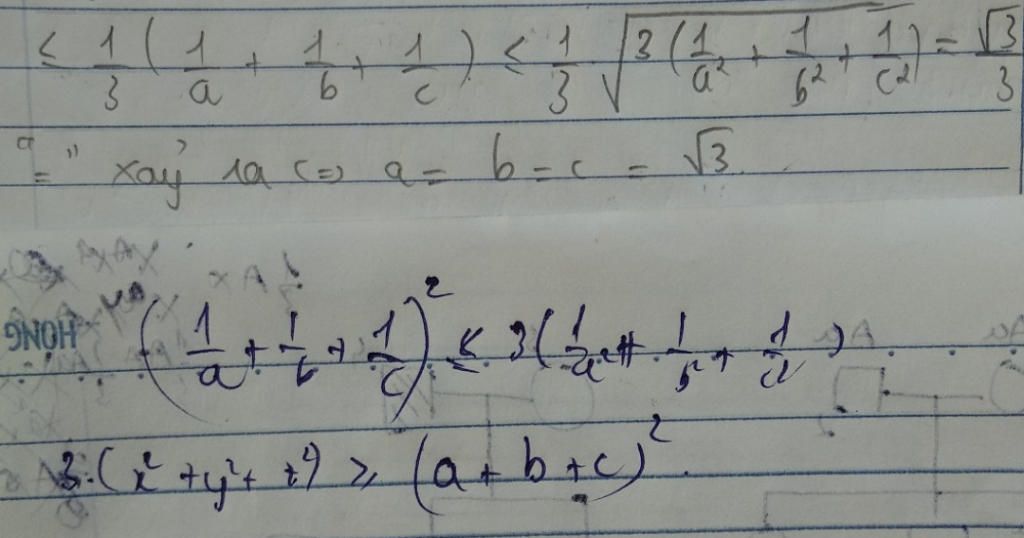 ≤ 1/3 (1/a + 1/b + 1/c) ≤ 1/3 √(3(1/a² + 1/b² + 1/c²)) = √3/3
"=" xảy ra <=> a = b = c = √3.
(1/a + 1/b + 1/c)² ≤ 3(1/a² + 1/b² + 1/c²)
3.(x² + y² + z²) ≥ (a + b + c)².